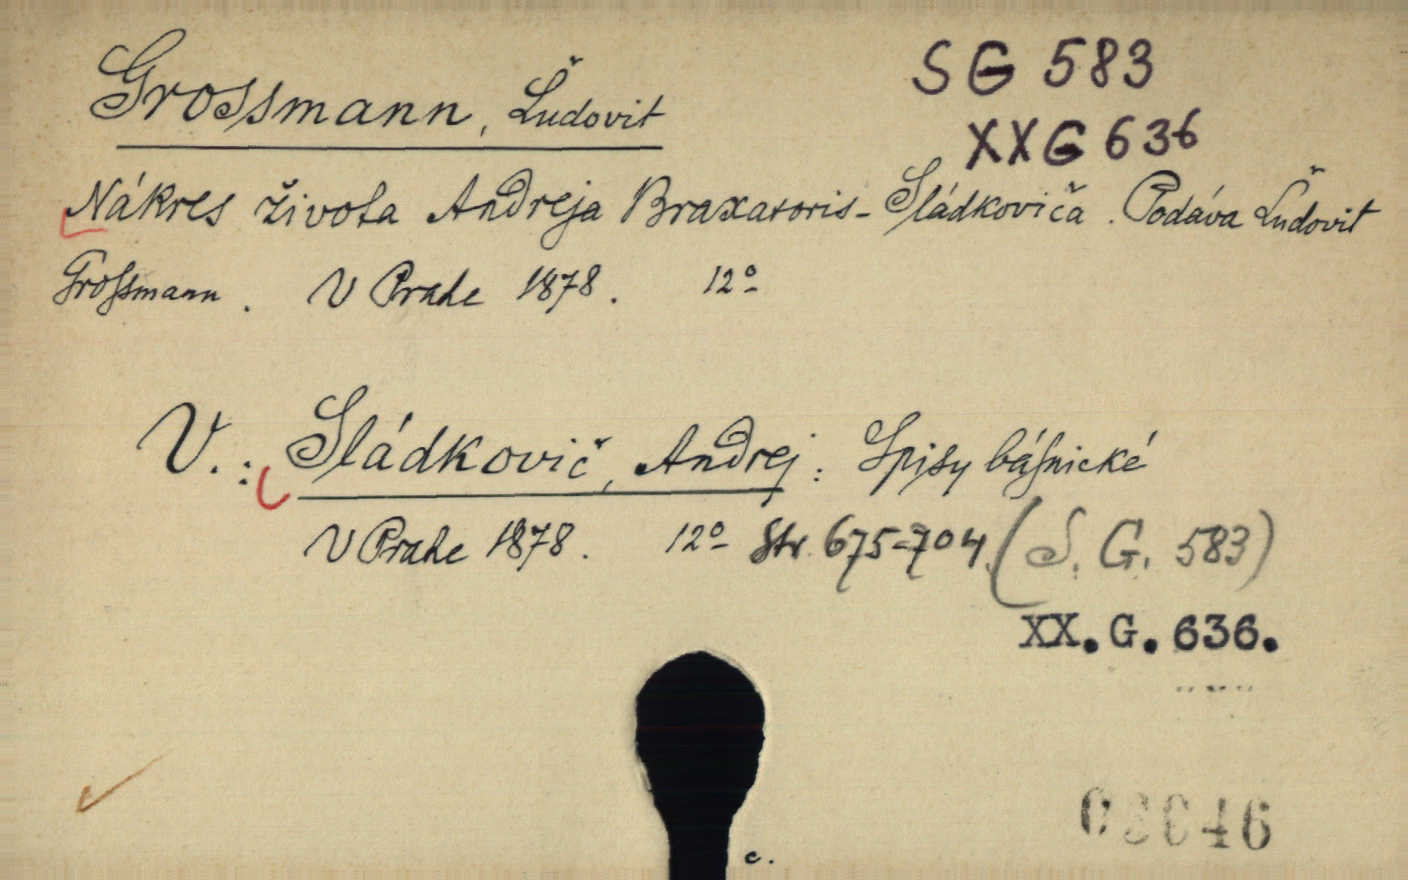 Grossmann, Ľudovit
SG 583
XXG 636
Nákres života Andreja Braxatoris-Sládkoviča. Podáva Ľudovit
Grossmann. V Praze 1878. 12º
V.: Sládkovič, Andrej: Spisy básnické
V Praze 1878. 12º Str. 675-704. (S. G. 583)
XX. G. 636.
c.